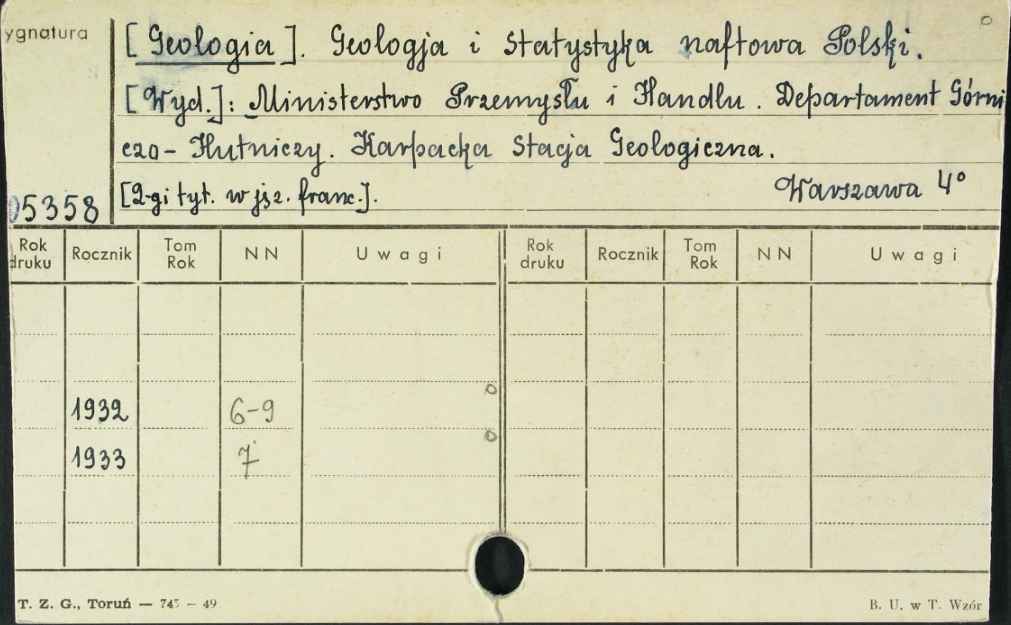 ygnatura
[Geologia]. Geologja i Statystyka naftowa Polski.
[Wyd.]: Ministerstwo Przemysłu i Handlu. Departament Górni
czo-Hutniczy. Karpacka Stacja Geologiczna.
[2-gi tyt. w jęz. franc.]. Warszawa 4°
05358
Rok druku Rocznik Tom Rok NN Uwagi Rok druku Rocznik Tom Rok NN Uwagi
1932 6-9
1933 7
T. Z. G., Toruń — 745 — 49 B. U. w T. Wzór